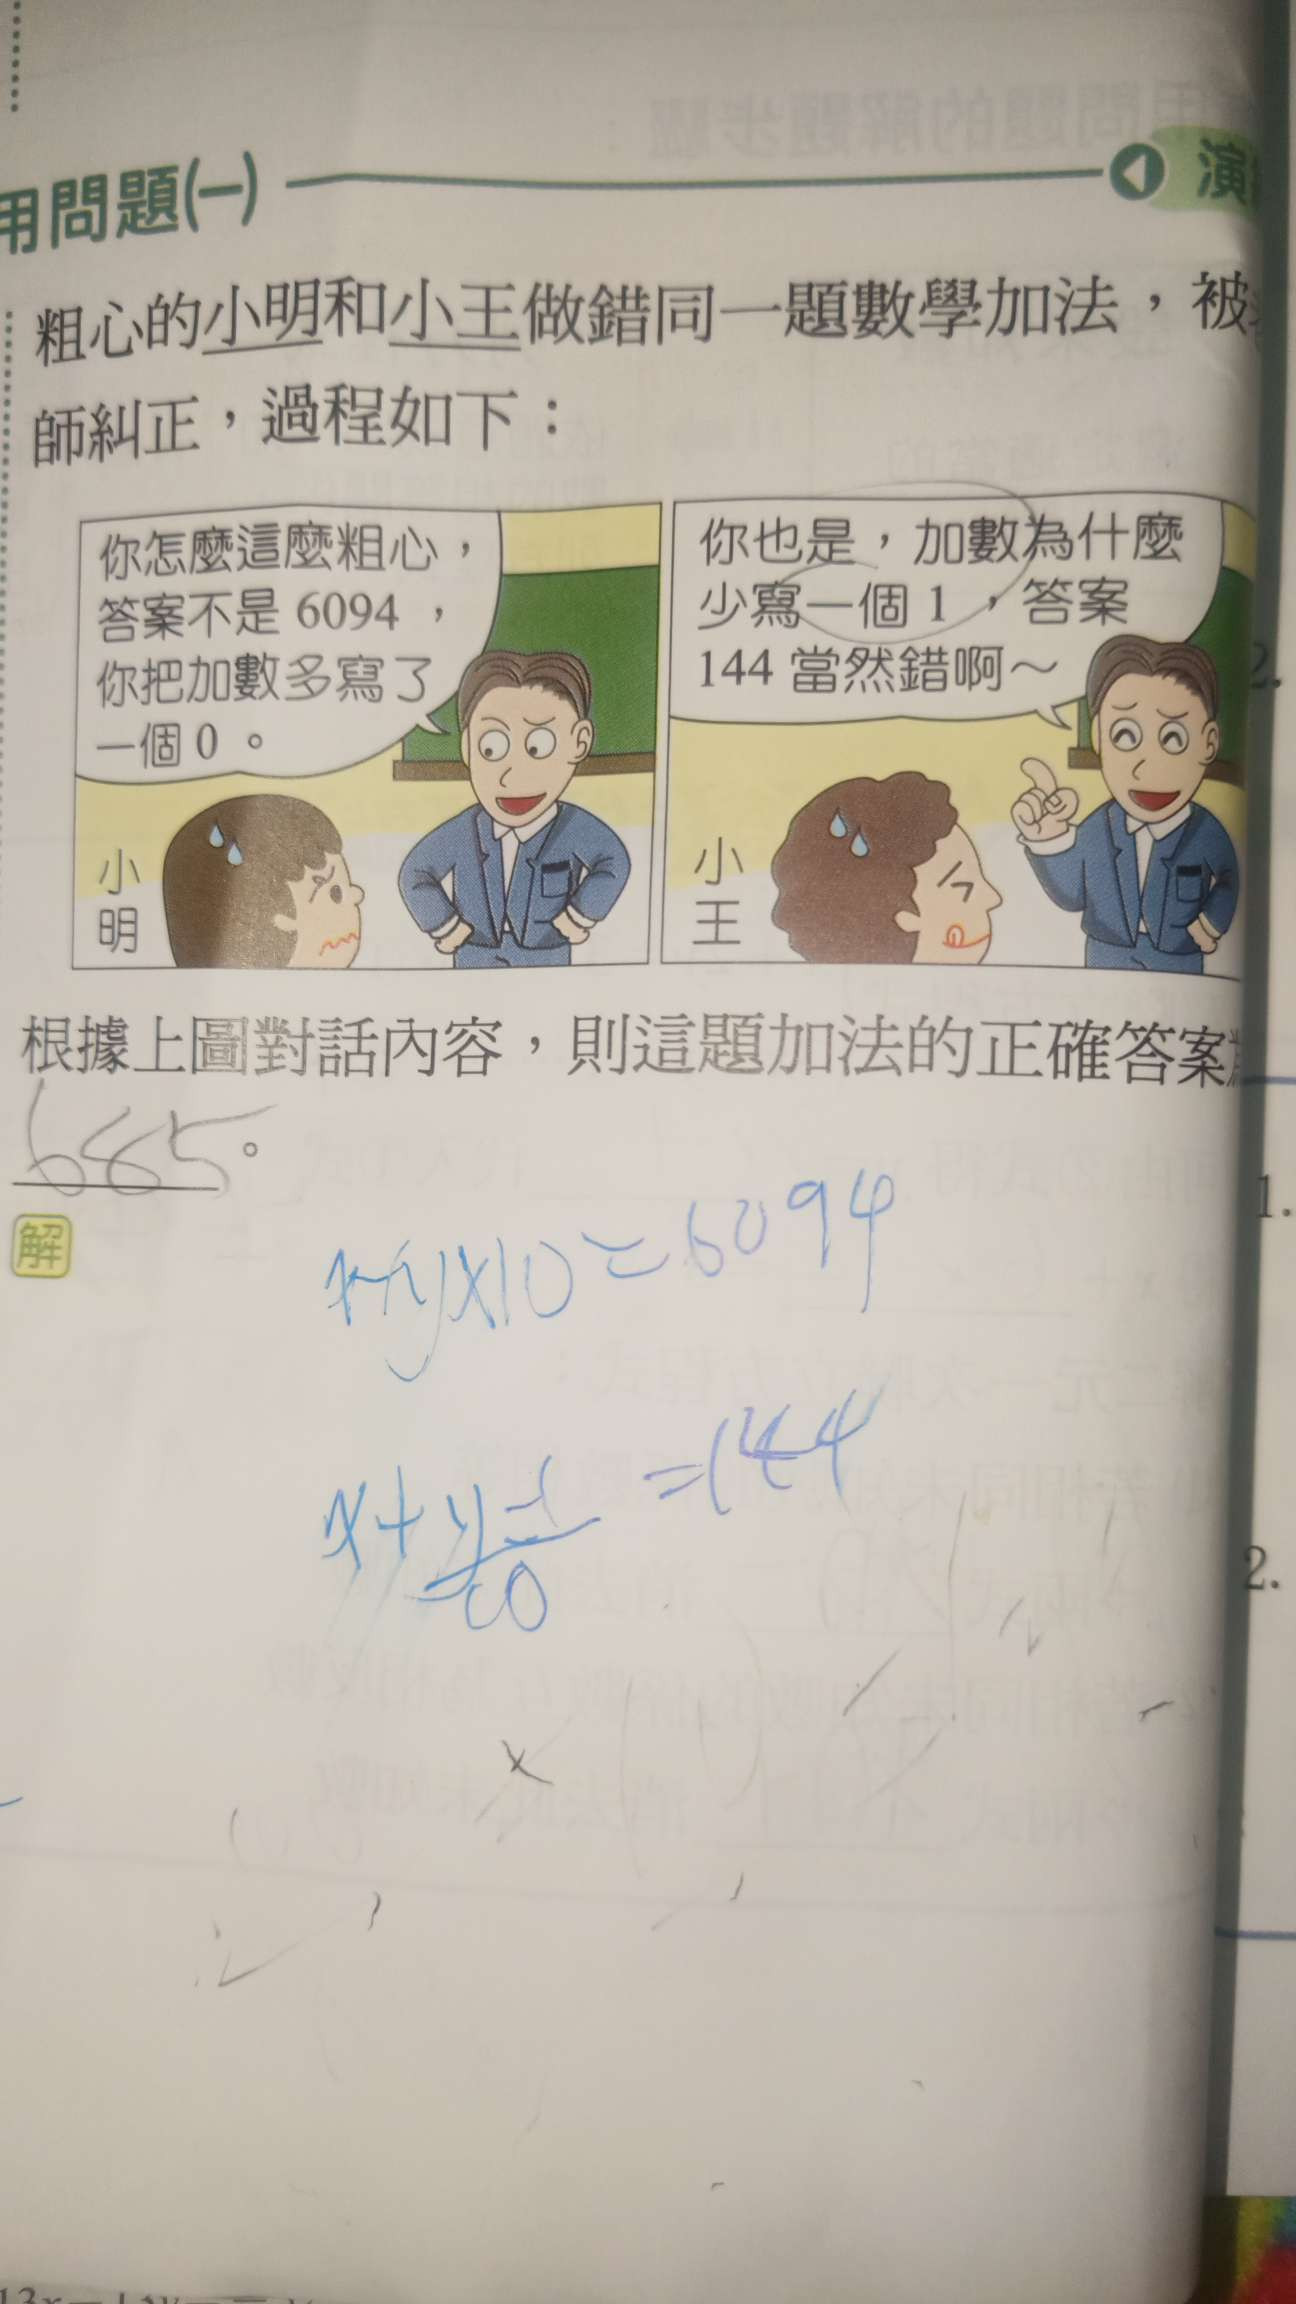 用問題(一)
演
粗心的小明和小王做錯同一題數學加法，被
師糾正，過程如下：
你怎麼這麼粗心，
答案不是 6094，
你把加數多寫了
一個 0。
小明
你也是，加數為什麼
少寫一個 1，答案
144 當然錯啊～
小王
根據上圖對話內容，則這題加法的正確答案為
685。
解
x+y×10=6094
x+y-1/10=144
2.
1.
2.